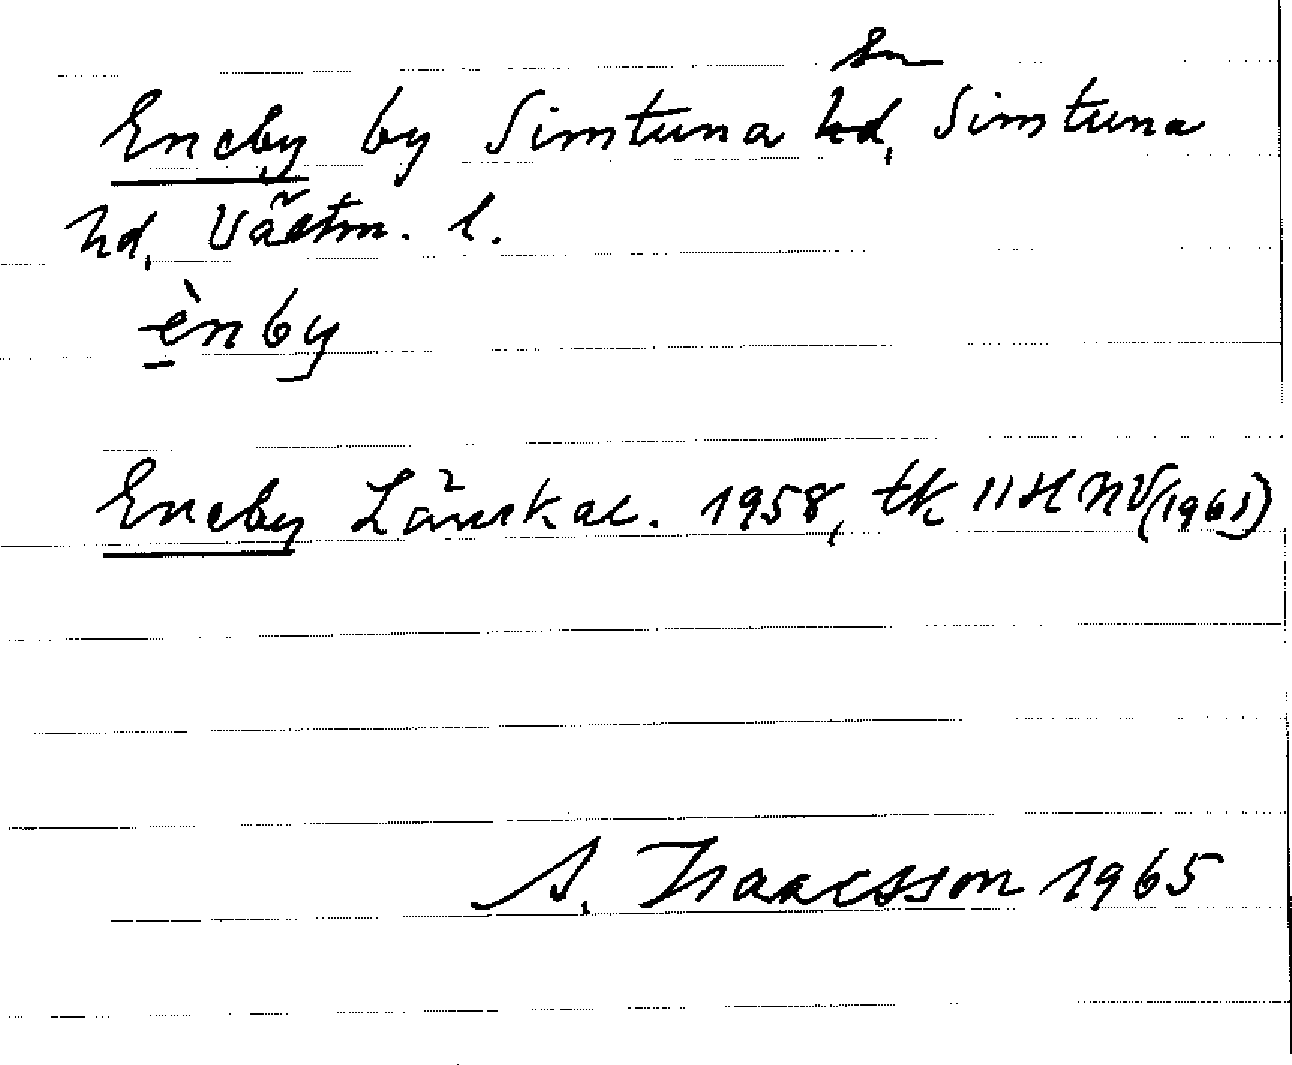 sn
Eneby by Simtuna hd, Simtuna
hd, Västm. l.
ènby
Eneby Länskal. 1958, tk 11H NV (1961)
A. Isaacsson 1965